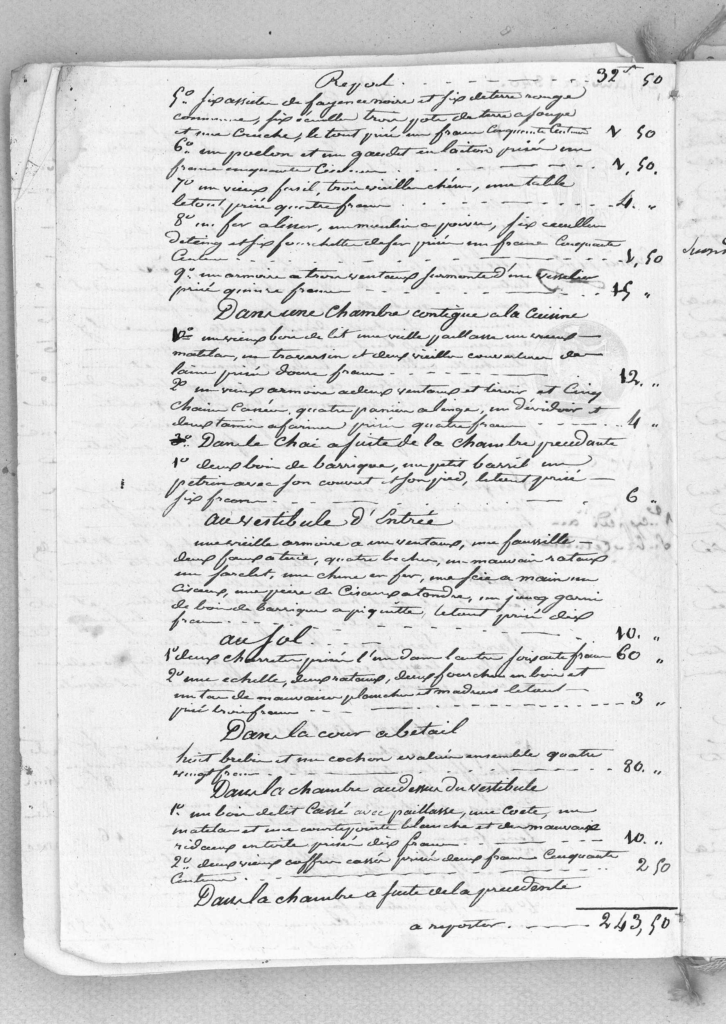 Report - - - - - - - 32f 50
5o six assiettes de fayence noire et six de terre rouge
commune, six ecuelle trois pots de terre a soupe
et une Cruche, le tout prisé un franc Cinquante Centimes 1 50
6o un poelon et un gaudet en laiton prisé un
franc cinquante Cimes - - - - 1,50.
7o un vieux fusil, trois vieille chése, une table
le tout prisé quatre francs - - - - 4. "
8o un fer a lisser, un moulin a poivre, six cueiller
detaing et six fourchette de fer prisé un franc Cinquante
Centimes - - - - 1,50
9o un armoire a trois ventaux surmonté d'une vesselier
prisé quinze francs - - - - 15 "
Dans une chambre contigue a la Cuisine
1o un vieux bois de lit une vielle paillasse un vieux
matelas, un traversin et deux vieilles couvertures de
laine prisé douze francs - - - 12. "
2o un vieux armoire a deux ventaux et tiroir et Cinq
chaises, quatre panier a linge, un dévidoir et
deux tamis a farine prisé quatre francs - 4 "
3o Dans le Chai a suite de la chambre precedante
1o deux bois de barrique, un petit barril un
petrin avec son couvert et son pied, le tout prisé
six francs - - - - 6 "
au vestibule d'Entrée
une vieille armoire a un ventaux, une faussille
deux faux a tuie, quatre beches, un mauvais rateau
un sarclet, une chene en fer, une scie a main un
Ciseaux, une peire de Ciseaux a tondre, un garni
de bois de barrique a piquette, le tout prisé dix
francs - - - - 10. "
au Sol
1o deux charrettes prisée l'une dans l'autre soixante francs 60 "
2o une echelle, deux rateaux, deux fourches en bois et
un tas de mauvaises planches et madriers le tout
prisé trois francs - - - - 3 "
Dans la cour a betail
huit brebis et un cochon evalués ensemble quatre
vingt francs - - - - 80. "
Dans la chambre au dessus du vestibule
1o un bois de lit Cassé avec paillasse, une Coete, un
matelas et une courtepointe blanche et de mauvaix
rideaux en toile prisés dix francs - - - 10. "
2o deux vieux coffres cassés prisé deux francs Cinquante
Centimes - - - - 2 50
Dans la chambre a suite de la precedente
a reporter - - - 243,50